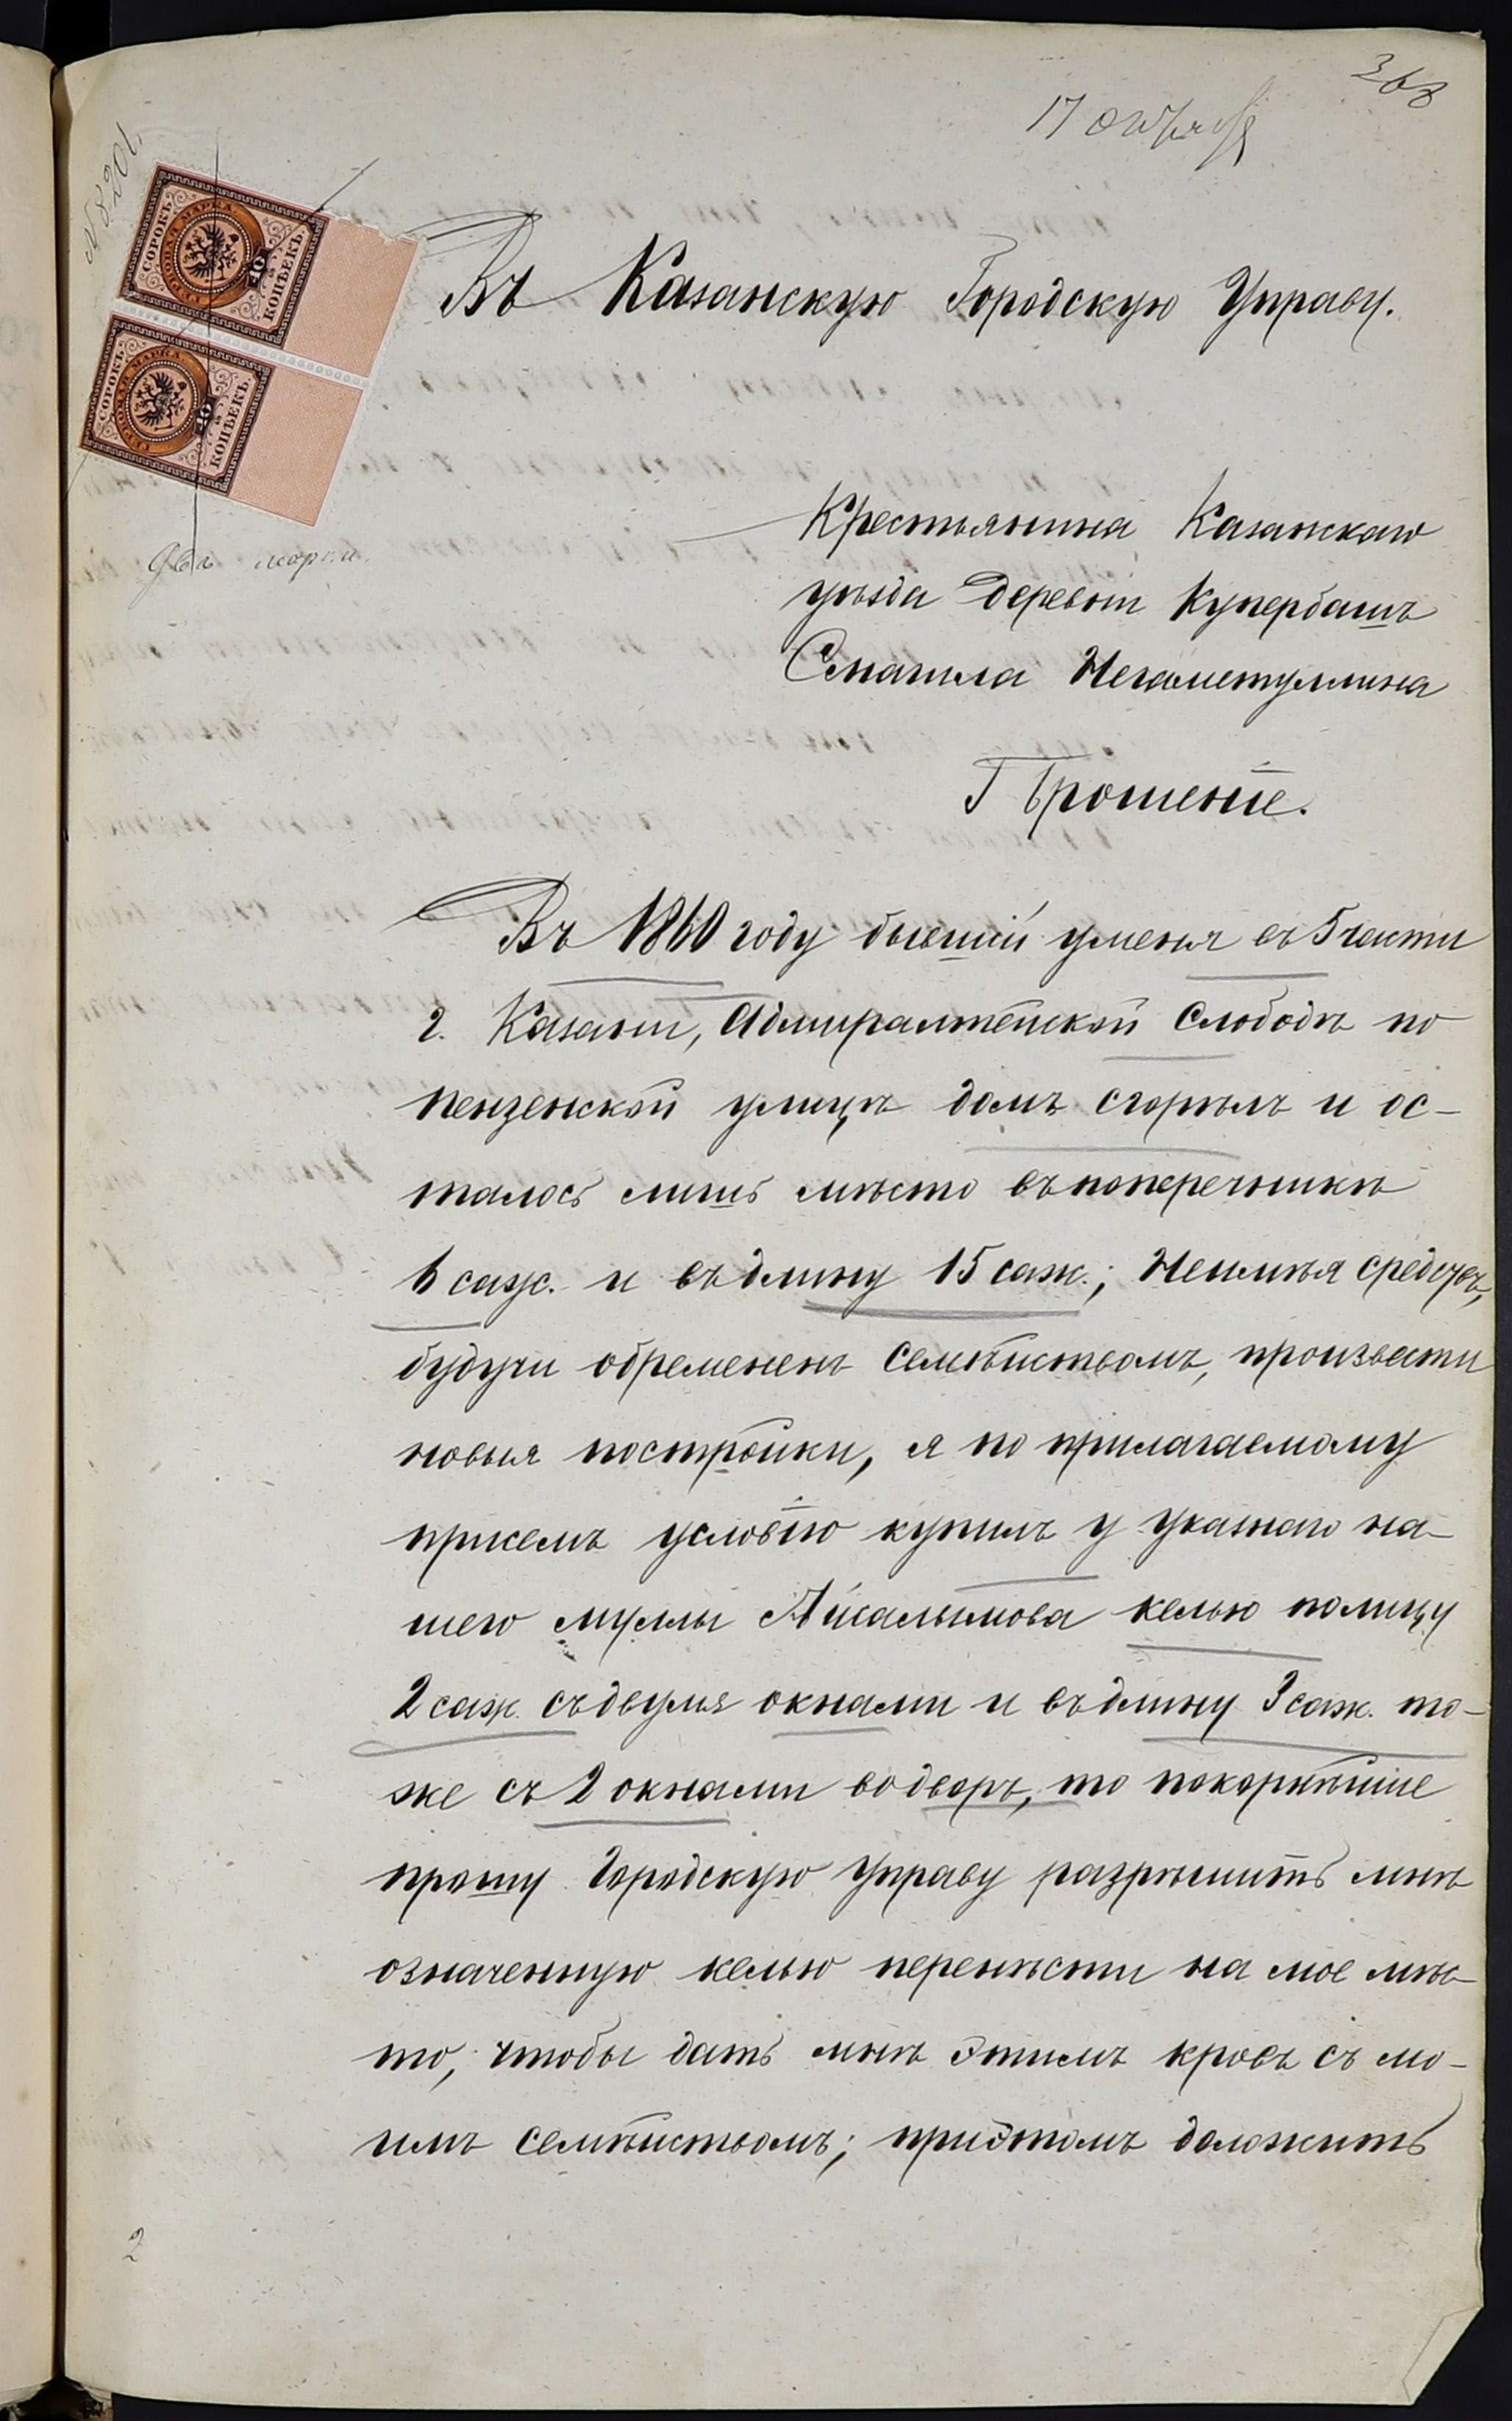 368
17 октября
№ 8201.
СОРОКЪ КОПѢЕКЪ
ГЕРБОВАЯ МАРКА
40
СОРОКЪ КОПѢЕКЪ
ГЕРБОВАЯ МАРКА
40
Двѣ марки.
Въ Казанскую Городскую Управу.
Крестьянина Казанскаго
уѣзда деревни Купербашъ
Смагила Негаметуллина
Прошеніе.
Въ 1860 году бывшій уменя въ 5 части
г. Казани, Адмиралтейской Слободѣ по
пензенской улицѣ домъ сгорѣлъ и ос-
талось лишь мѣсто въ поперечникѣ
6 саж. и въ длину 15 саж.; Неимѣя средствъ,
будучи обремененъ семействомъ, произвести
новыя постройки, я по прилагаемому
присемъ условію купилъ у указнаго на-
шего муллы Айсалымова келью полицу
2 саж. съ двумя окнами и въ длину 3 саж. то-
же съ 2 окнами во дворъ, то покорнѣйше
прошу Городскую Управу разрѣшить мнѣ
означенную келью перенѣсти на мое мѣс-
то, чтобы дать мнѣ этимъ кровъ съ мо-
имъ семѣйствомъ; приэтомъ доложить
2